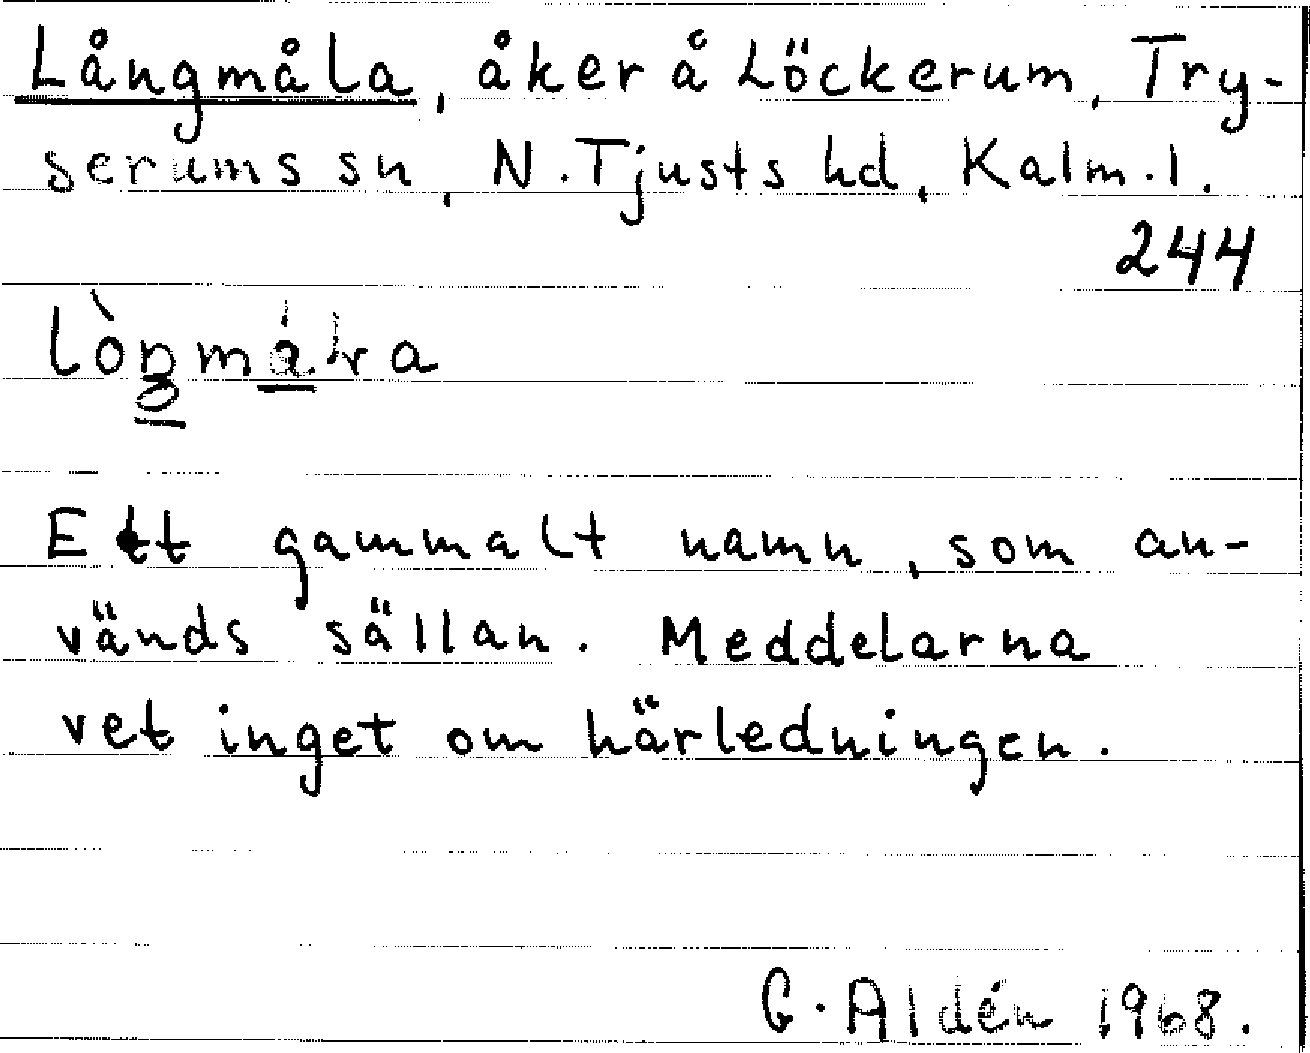 Långmåla, åker å Löckerum, Try-
serums sn, N. Tjusts hd, Kalm. l.
244
Ett gammalt namn, som an-
vänds sällan. Meddelarna
vet inget om härledningen.
G. Aldén 1968.